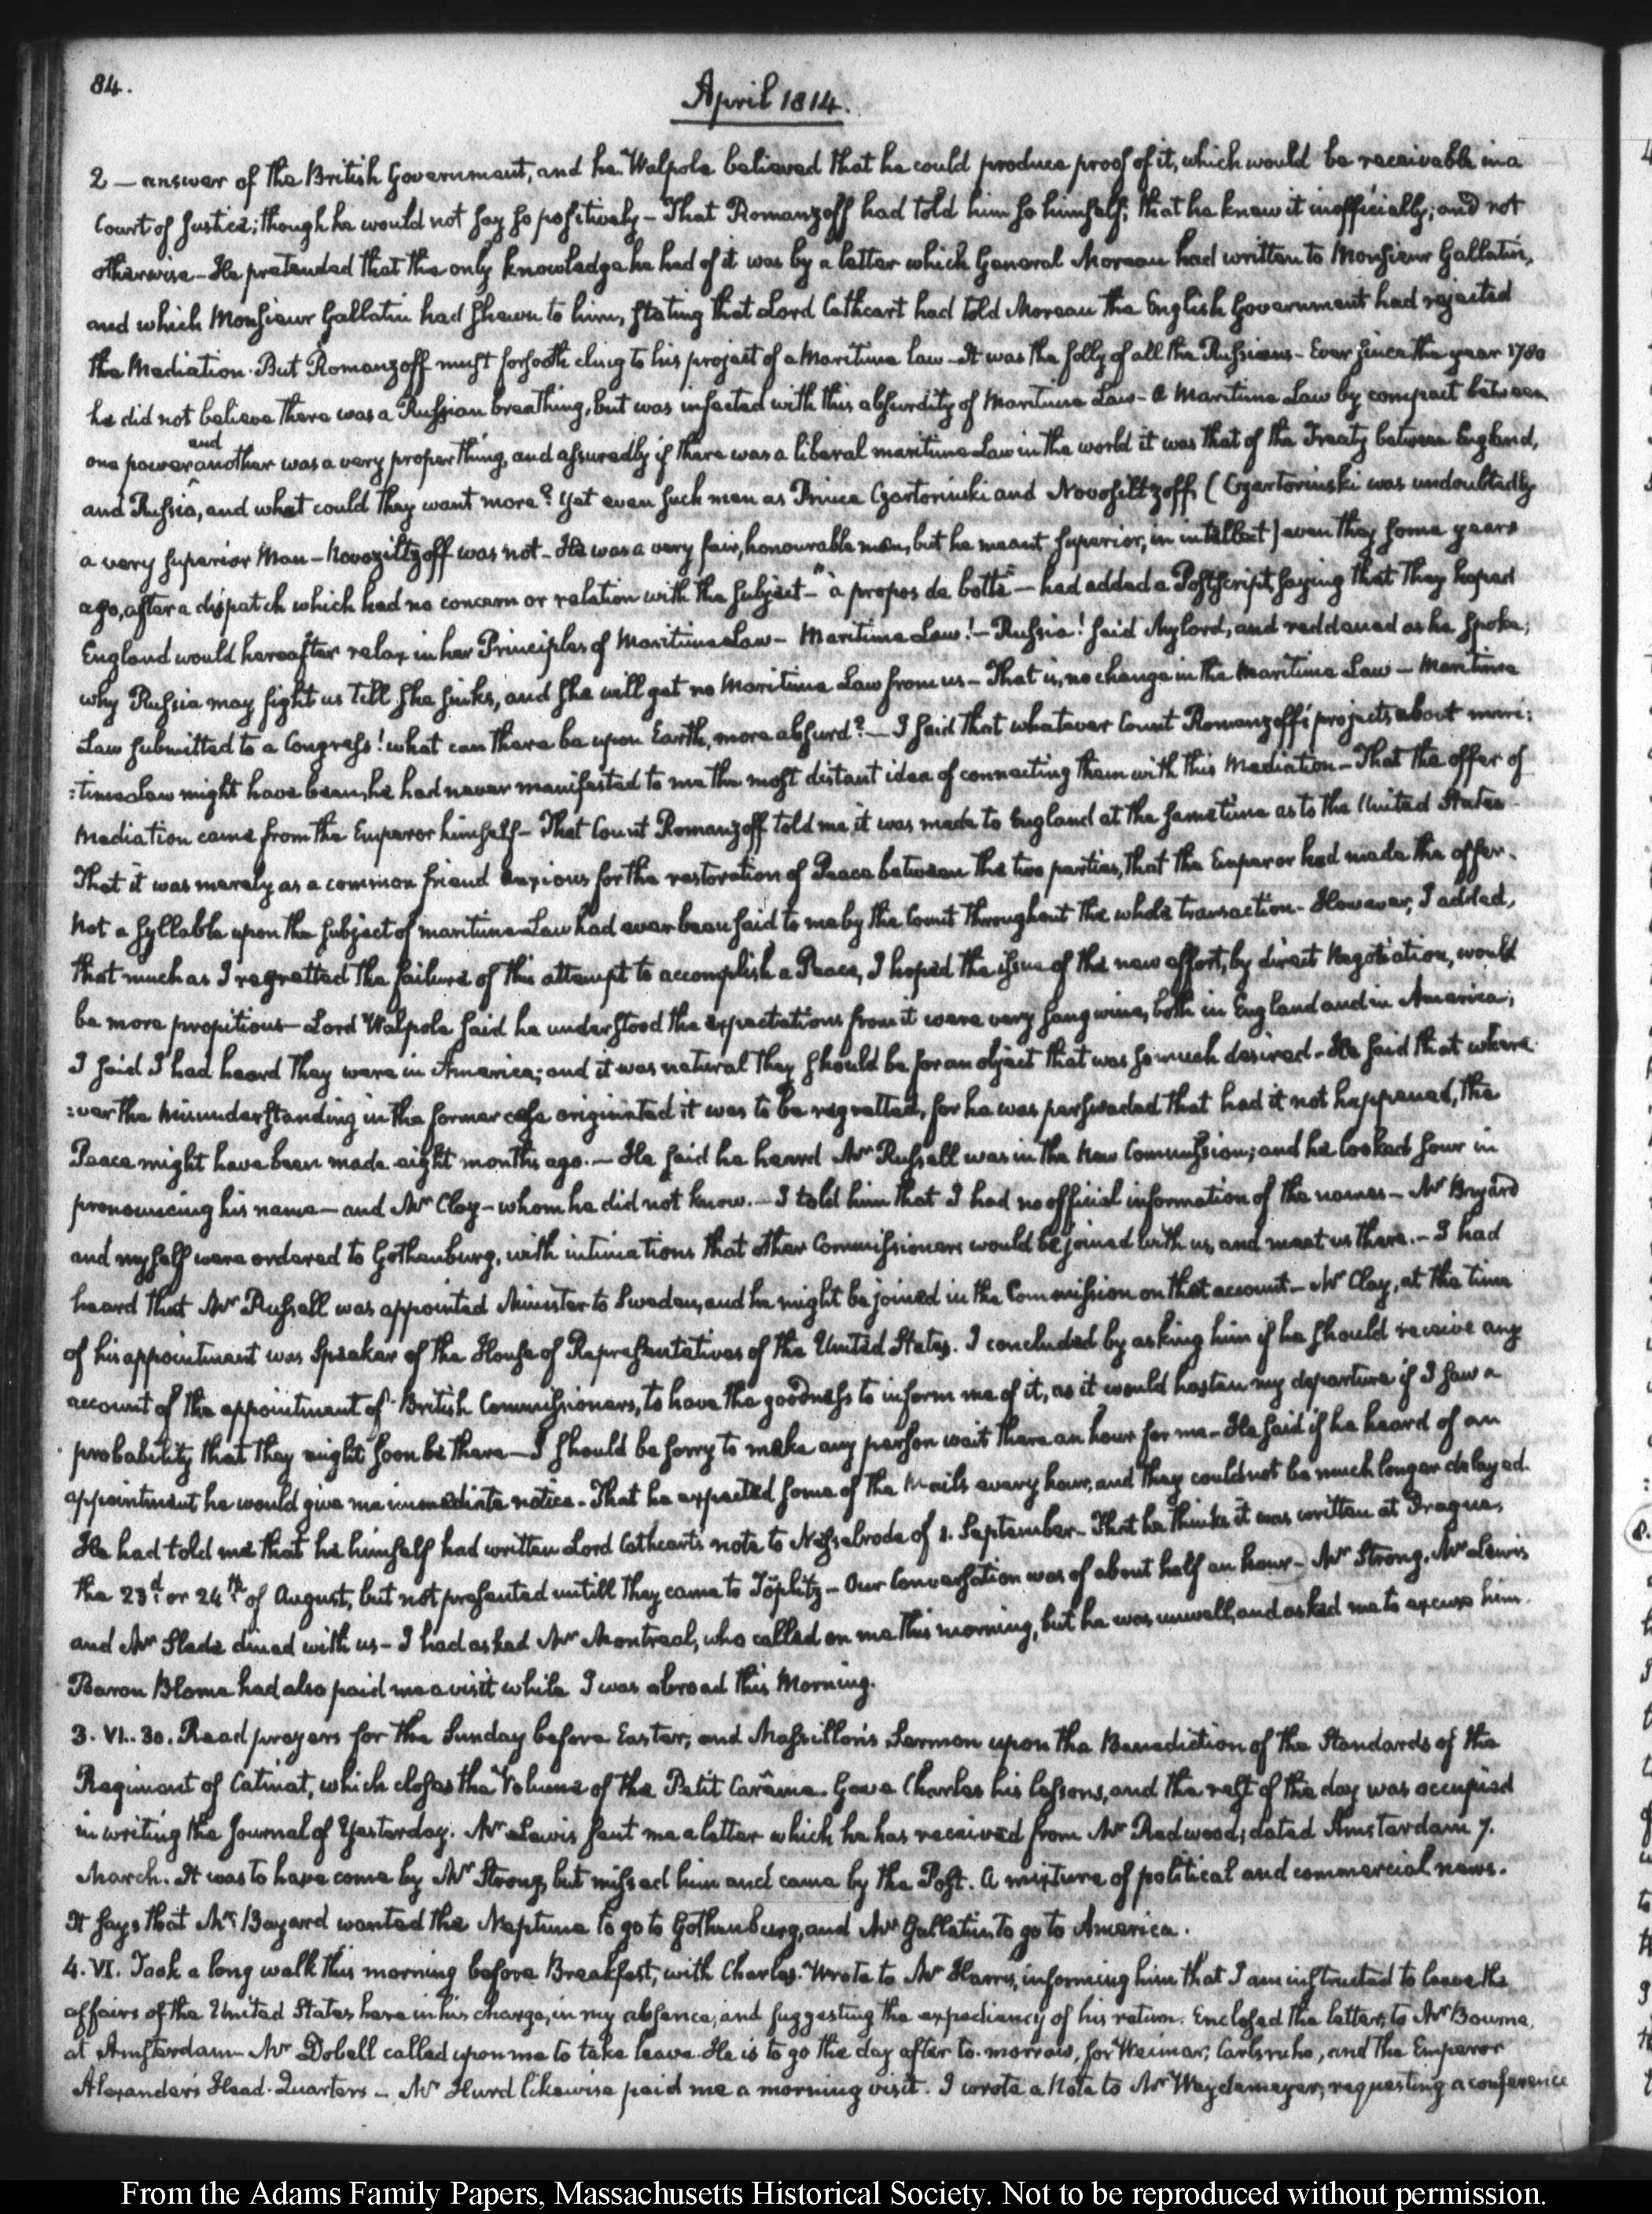 84.
April 1814.
2 — answer of the British Government, and he Walpole believed that he could produce proof of it, which would be receivable in a
Court of Justice; though he would not say so positively — That Romanzoff had told him so himself; that he knew it inofficially; and not
otherwise — He pretended that the only knowledge he had of it was by a letter which General Moreau had written to Monsieur Gallatin,
and which Monsieur Gallatin had shewn to him, stating that Lord Cathcart had told Moreau the English Government had rejected
the Mediation. But Romanzoff must forsooth cling to his project of a Maritime law — It was the folly of all the Russians — Ever since the year 1780
he did not believe there was a Russian breathing, but was infected with this absurdity of Maritime Law — A Maritime Law by compact between
one power and another was a very proper thing, and assuredly if there was a liberal maritime Law in the world it was that of the Treaty between England,
and Russia, and what could they want more? Yet even such men as Prince Czartorinski and Novosiltzoff (Czartorinski was undoubtedly
a very superior Man — Novoziltzoff was not — He was a very fair, honourable man, but he meant superior, in intellect) even they some years
ago, after a dispatch which had no concern or relation with the subject — "à propos de botte" — had added a Postscript, saying that they hoped
England would hereafter relax in her Principles of Maritime Law — Maritime Law! — Russia! said Mylord, and reddened as he spoke;
why Russia may fight us till she sinks, and she will get no Maritime Law from us — That is, no change in the Maritime Law — Maritime
Law submitted to a Congress! what can there be upon Earth, more absurd? — I said that whatever Count Romanzoff's projects about mari:
:time Law might have been, he had never manifested to me the most distant idea of connecting them with this Mediation — That the offer of
Mediation came from the Emperor himself — That Count Romanzoff told me, it was made to England at the same time as to the United States —
That it was merely as a common friend anxious for the restoration of Peace between the two parties, that the Emperor had made the offer.
Not a syllable upon the subject of maritime Law had ever been said to me by the Count throughout the whole transaction — However, I added,
that much as I regretted the failure of this attempt to accomplish a Peace, I hoped the issue of the new effort, by direct Negotiation, would
be more propitious — Lord Walpole said he understood the expectations from it were very sanguine, both in England and in America;
I said I had heard they were in America; and it was natural they should be for an object that was so much desired — He said that where:
:ver the Misunderstanding in the former case originated it was to be regretted, for he was perswaded that had it not happened, the
Peace might have been made eight months ago. — He said he heard Mr Russell was in the New Commission; and he looked sour in
pronouncing his name — and Mr Clay — whom he did not know. — I told him that I had no official information of the names — Mr Bayard
and myself were ordered to Gothenburg, with intimations that other Commissioners would be joined with us, and meet us there. — I had
heard that Mr Russell was appointed Minister to Sweden, and he might be joined in the Commission on that account — Mr Clay, at the time
of his appointment was Speaker of the House of Representatives of the United States. I concluded by asking him if he should receive any
account of the appointment of British Commissioners, to have the goodness to inform me of it, as it would hasten my departure if I saw a
probability that they might soon be there — I should be sorry to make any person wait there an hour for me — He said if he heard of an
appointment he would give me immediate notice — That he expected some of the Mails every hour, and they could not be much longer delayed.
He had told me that he himself had written Lord Cathcart's note to Nesselrode of 1. September — That he thinks it was written at Prague,
the 23d or 24th of August, but not presented untill they came to Töplitz — Our Conversation was of about half an hour — Mr Strong, Mr Lewis
and Mr Slade dined with us — I had asked Mr Montreal, who called on me this morning, but he was unwell, and asked me to excuse him.
Baron Blome had also paid me a visit while I was abroad this Morning.
3. VI..30. Read prayers for the Sunday before Easter, and Massillon's Sermon upon the Benediction of the Standards of the
Regiment of Catinat, which closes the Volume of the Petit Carême. Gave Charles his lessons, and the rest of the day was occupied
in writing the Journal of Yesterday. Mr Lewis sent me a letter which he has received from Mr Redwood; dated Amsterdam 7.
March. It was to have come by Mr Strong, but missed him and came by the Post. A mixture of political and commercial news.
It says that Mr Bayard wanted the Neptune to go to Gothenburg, and Mr Gallatin to go to America.
4. VI. Took a long walk this morning before Breakfast, with Charles. Wrote to Mr Harris, informing him that I am instructed to leave the
affairs of the United States here in his charge, in my absence; and suggesting the expediency of his return. Enclosed the letter, to Mr Bourne,
at Amsterdam — Mr Dobell called upon me to take leave. He is to go the day after to-morrow, for Weimar, Carlsruhe, and the Emperor
Alexander's Head-Quarters — Mr Hurd likewise paid me a morning visit. I wrote a Note to Mr Weydemeyer, requesting a conference
From the Adams Family Papers, Massachusetts Historical Society. Not to be reproduced without permission.